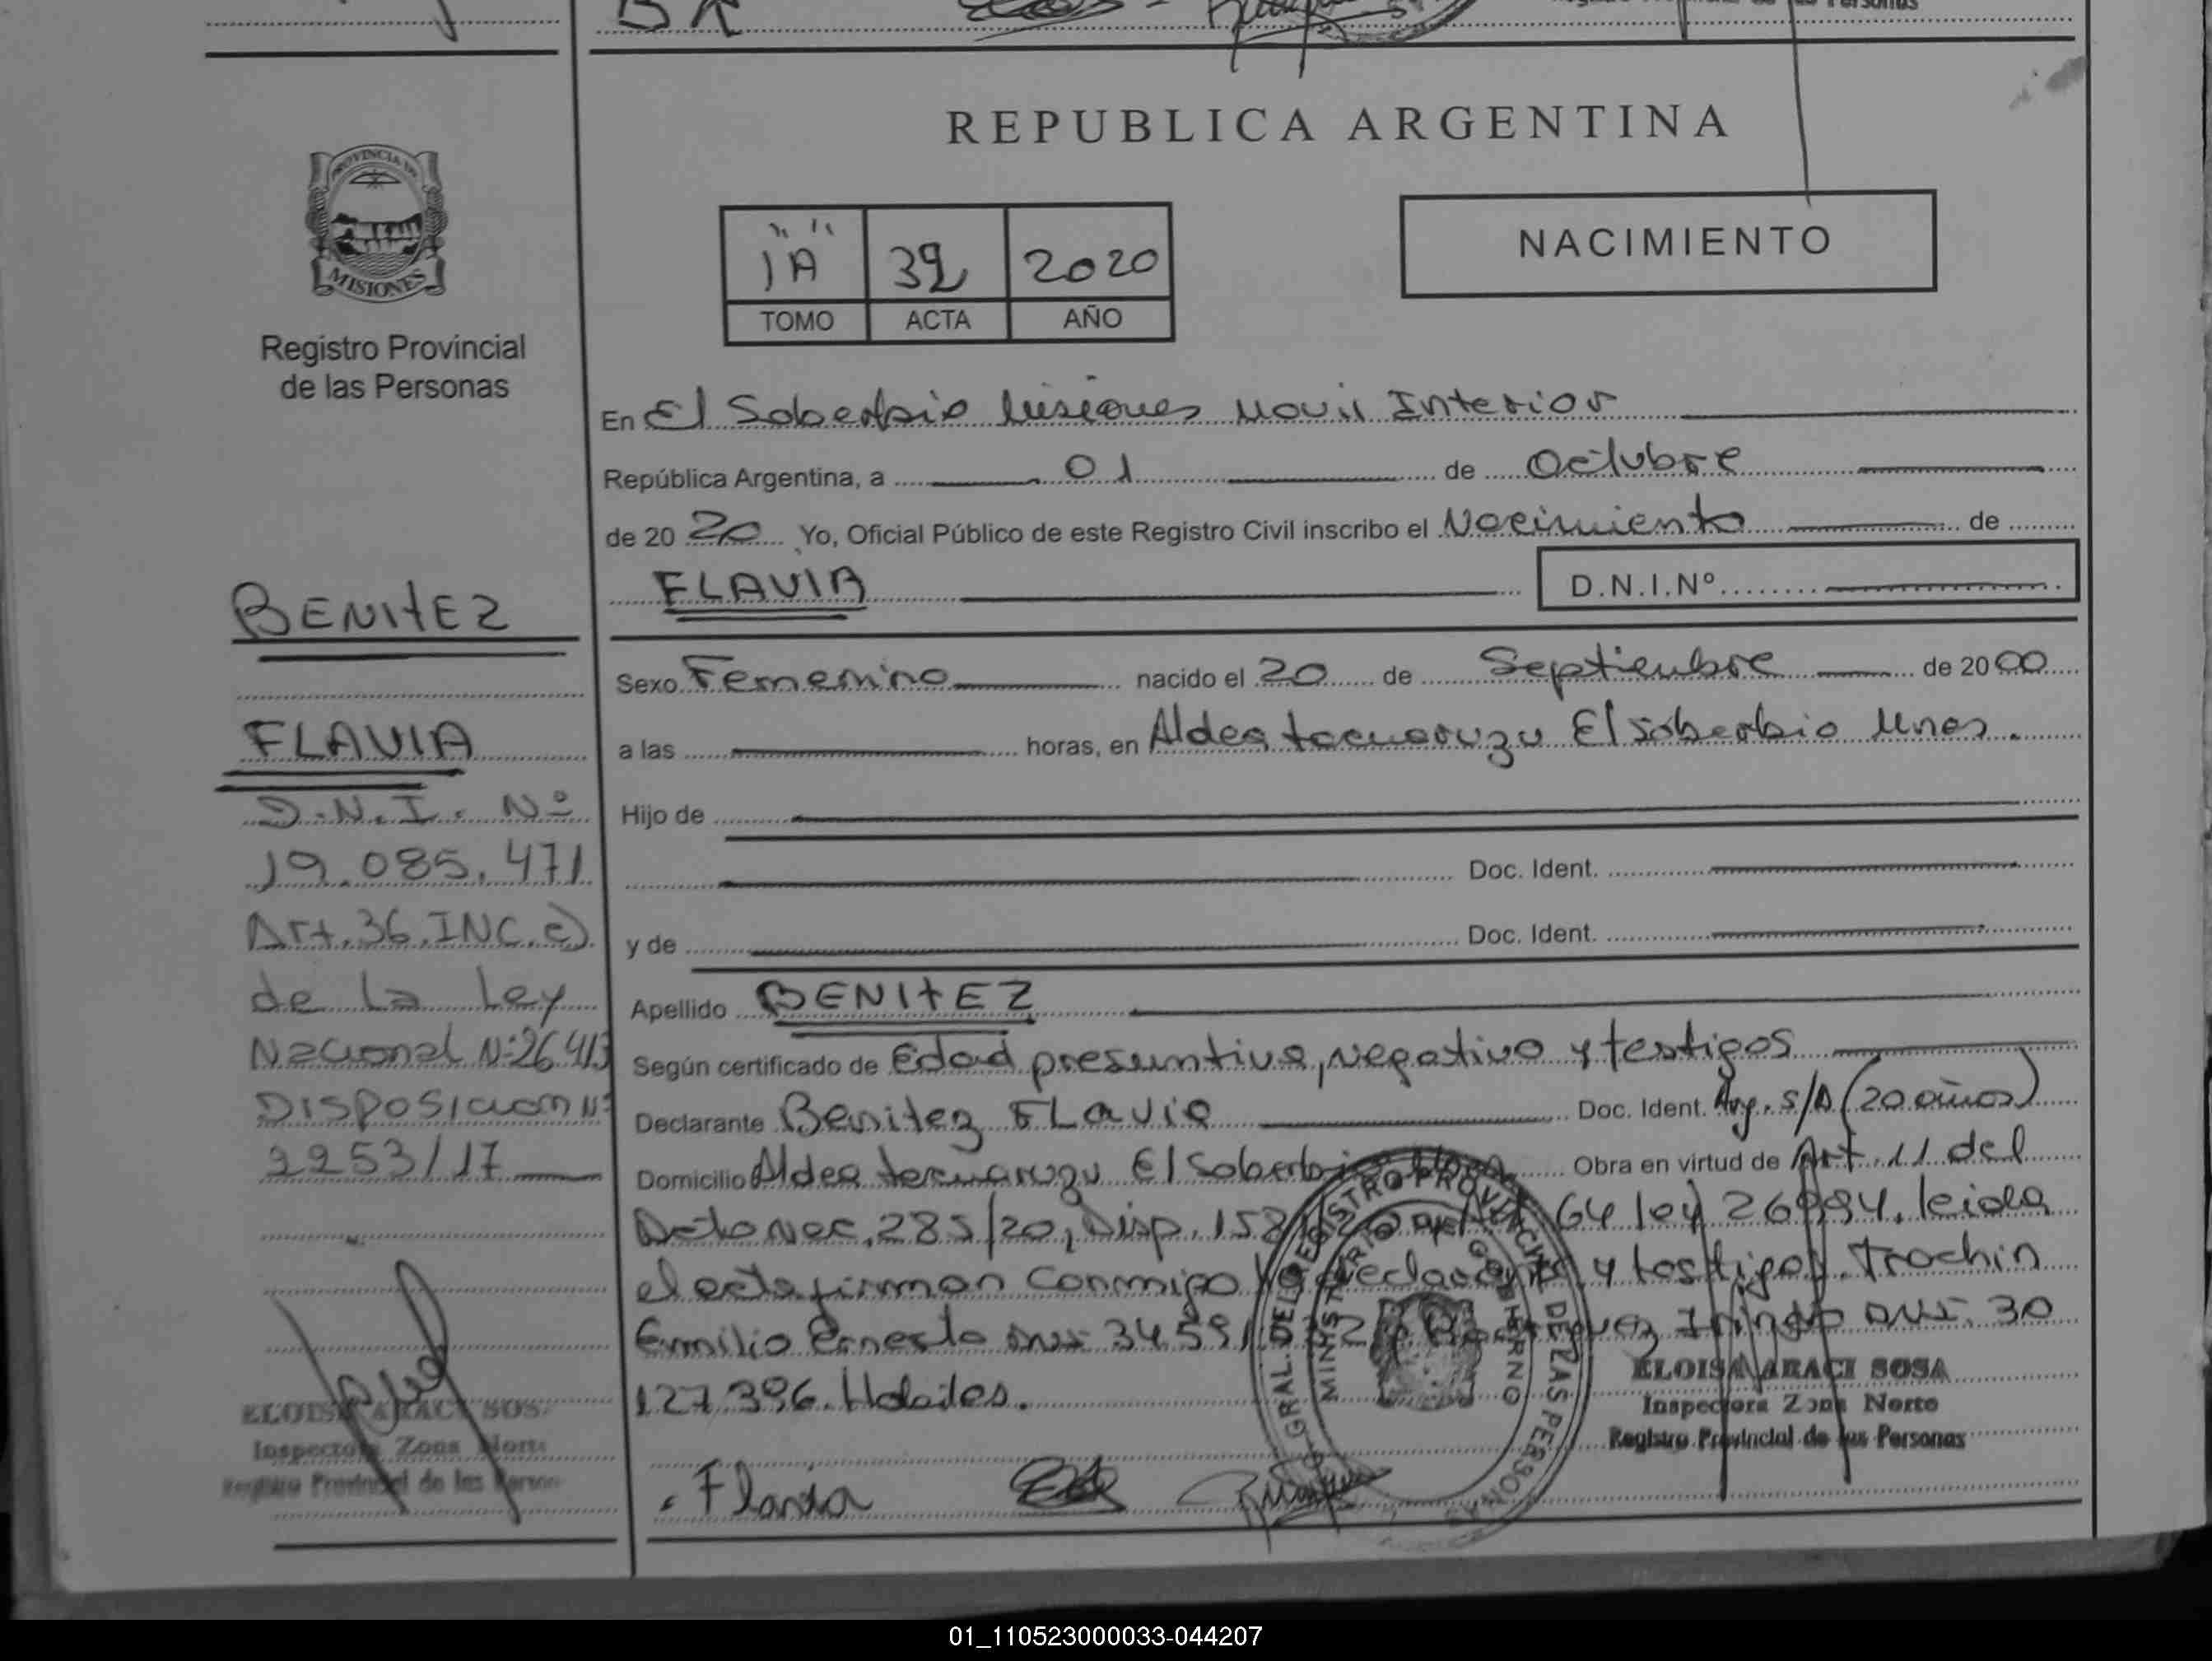 REPUBLICA ARGENTINA
PROVINCIA DE
MISIONES
Registro Provincial
de las Personas
"1A" 32 2020
TOMO ACTA AÑO
NACIMIENTO
En El Soberbio Misiones Movil Interior
República Argentina, a 01 de Octubre
de 20 20 Yo, Oficial Público de este Registro Civil inscribo el Nacimiento de
FLAVIA D.N.I.Nº
Sexo Femenino nacido el 20 de Septiembre de 20 00
a las horas, en Aldea tacuaruzu El soberbio Mnes.
Hijo de
Doc. Ident.
y de Doc. Ident.
Apellido BENITEZ
Según certificado de Edad presuntiva, negativo y testigos
Declarante Benitez FLavia Doc. Ident. Arg. S/D (20 años)
Domicilio Aldea tacuaruzu El Soberbio Obra en virtud de Art. 11 del
Dcto Nac. 285/20, Disp. 64 ley 26994. leida
el acta firman conmigo la declarante y testigos. Trochin
Emilio Ernesto DNI 34591 DNI. 30
127.396. Habiles.
Flavia
ELOISA ARACI SOSA
Inspectora Zona Norte
Registro Provincial de las Personas
BENITEZ
FLAVIA
D.N.I. Nº
19.085.471
Art.36.INC.c)
de la Ley
Nacional Nº26.413
DISPOSICION Nº
2253/17
ELOISA ARACI SOSA
Inspectora Zona Norte
Registro Provincial de las Person
01_110523000033-044207